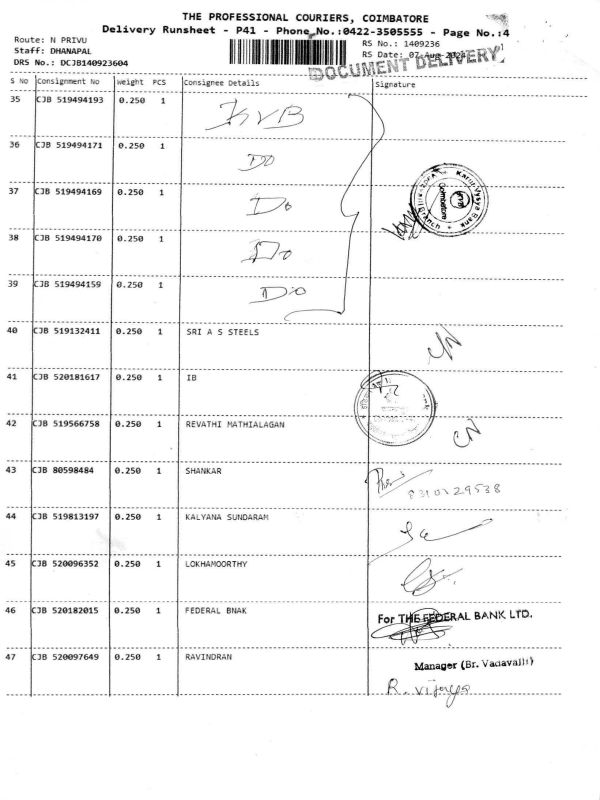 THE PROFESSIONAL COURIERS, COIMBATORE
Delivery Runsheet - P41 - Phone No.:0422-3505555 - Page No.:4
Route: N PRIVU
Staff: DHANAPAL
DRS No.: DCJB140923604
RS No.: 1409236
RS Date: 07-Aug-2024
DOCUMENT DELIVERY
S No Consignment No Weight PCS Consignee Details Signature
35 CJB 519494193 0.250 1 KVB
36 CJB 519494171 0.250 1 Do
37 CJB 519494169 0.250 1 Do
Karur Vysya Bank
Coimbatore
Branch
38 CJB 519494170 0.250 1 Do
39 CJB 519494159 0.250 1 Do
40 CJB 519132411 0.250 1 SRI A S STEELS
41 CJB 520181617 0.250 1 IB
42 CJB 519566758 0.250 1 REVATHI MATHIALAGAN
43 CJB 80598484 0.250 1 SHANKAR
44 CJB 519813197 0.250 1 KALYANA SUNDARAM
45 CJB 520096352 0.250 1 LOKHAMOORTHY
46 CJB 520182015 0.250 1 FEDERAL BNAK For THE FEDERAL BANK LTD.
47 CJB 520097649 0.250 1 RAVINDRAN Manager (Br. Vadavalli)
R. Vijaya